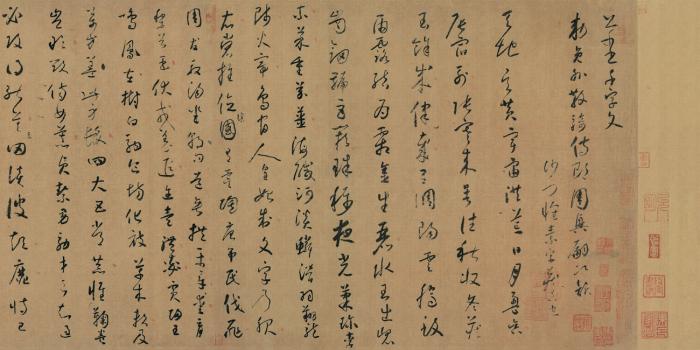 千字文
敕員外散騎侍郎周興嗣次韻
沙門懷素字
天地玄黃宇宙洪荒日月盈昃
辰宿列張寒來暑往秋收冬藏
閏餘成律歲呂調陽雲騰致
雨露結為霜金生麗水玉出崑
崗劍號巨闕珠稱夜光菓珍李
柰菜重芥薑海鹹河淡鱗潛羽翔龍
師火帝鳥官人皇始制文字乃服
衣裳推位國有虞陶唐弔民伐罪
周發殷湯坐朝問道垂拱平章愛育
黎首臣伏戎羌遐邇壹體率賓歸王
鳴鳳在樹白駒食場化被草木賴及
萬方蓋此身髮四大五常恭惟鞠養
豈敢毀傷女慕貞潔男效才良知過
必改得能莫忘罔談彼短靡恃己